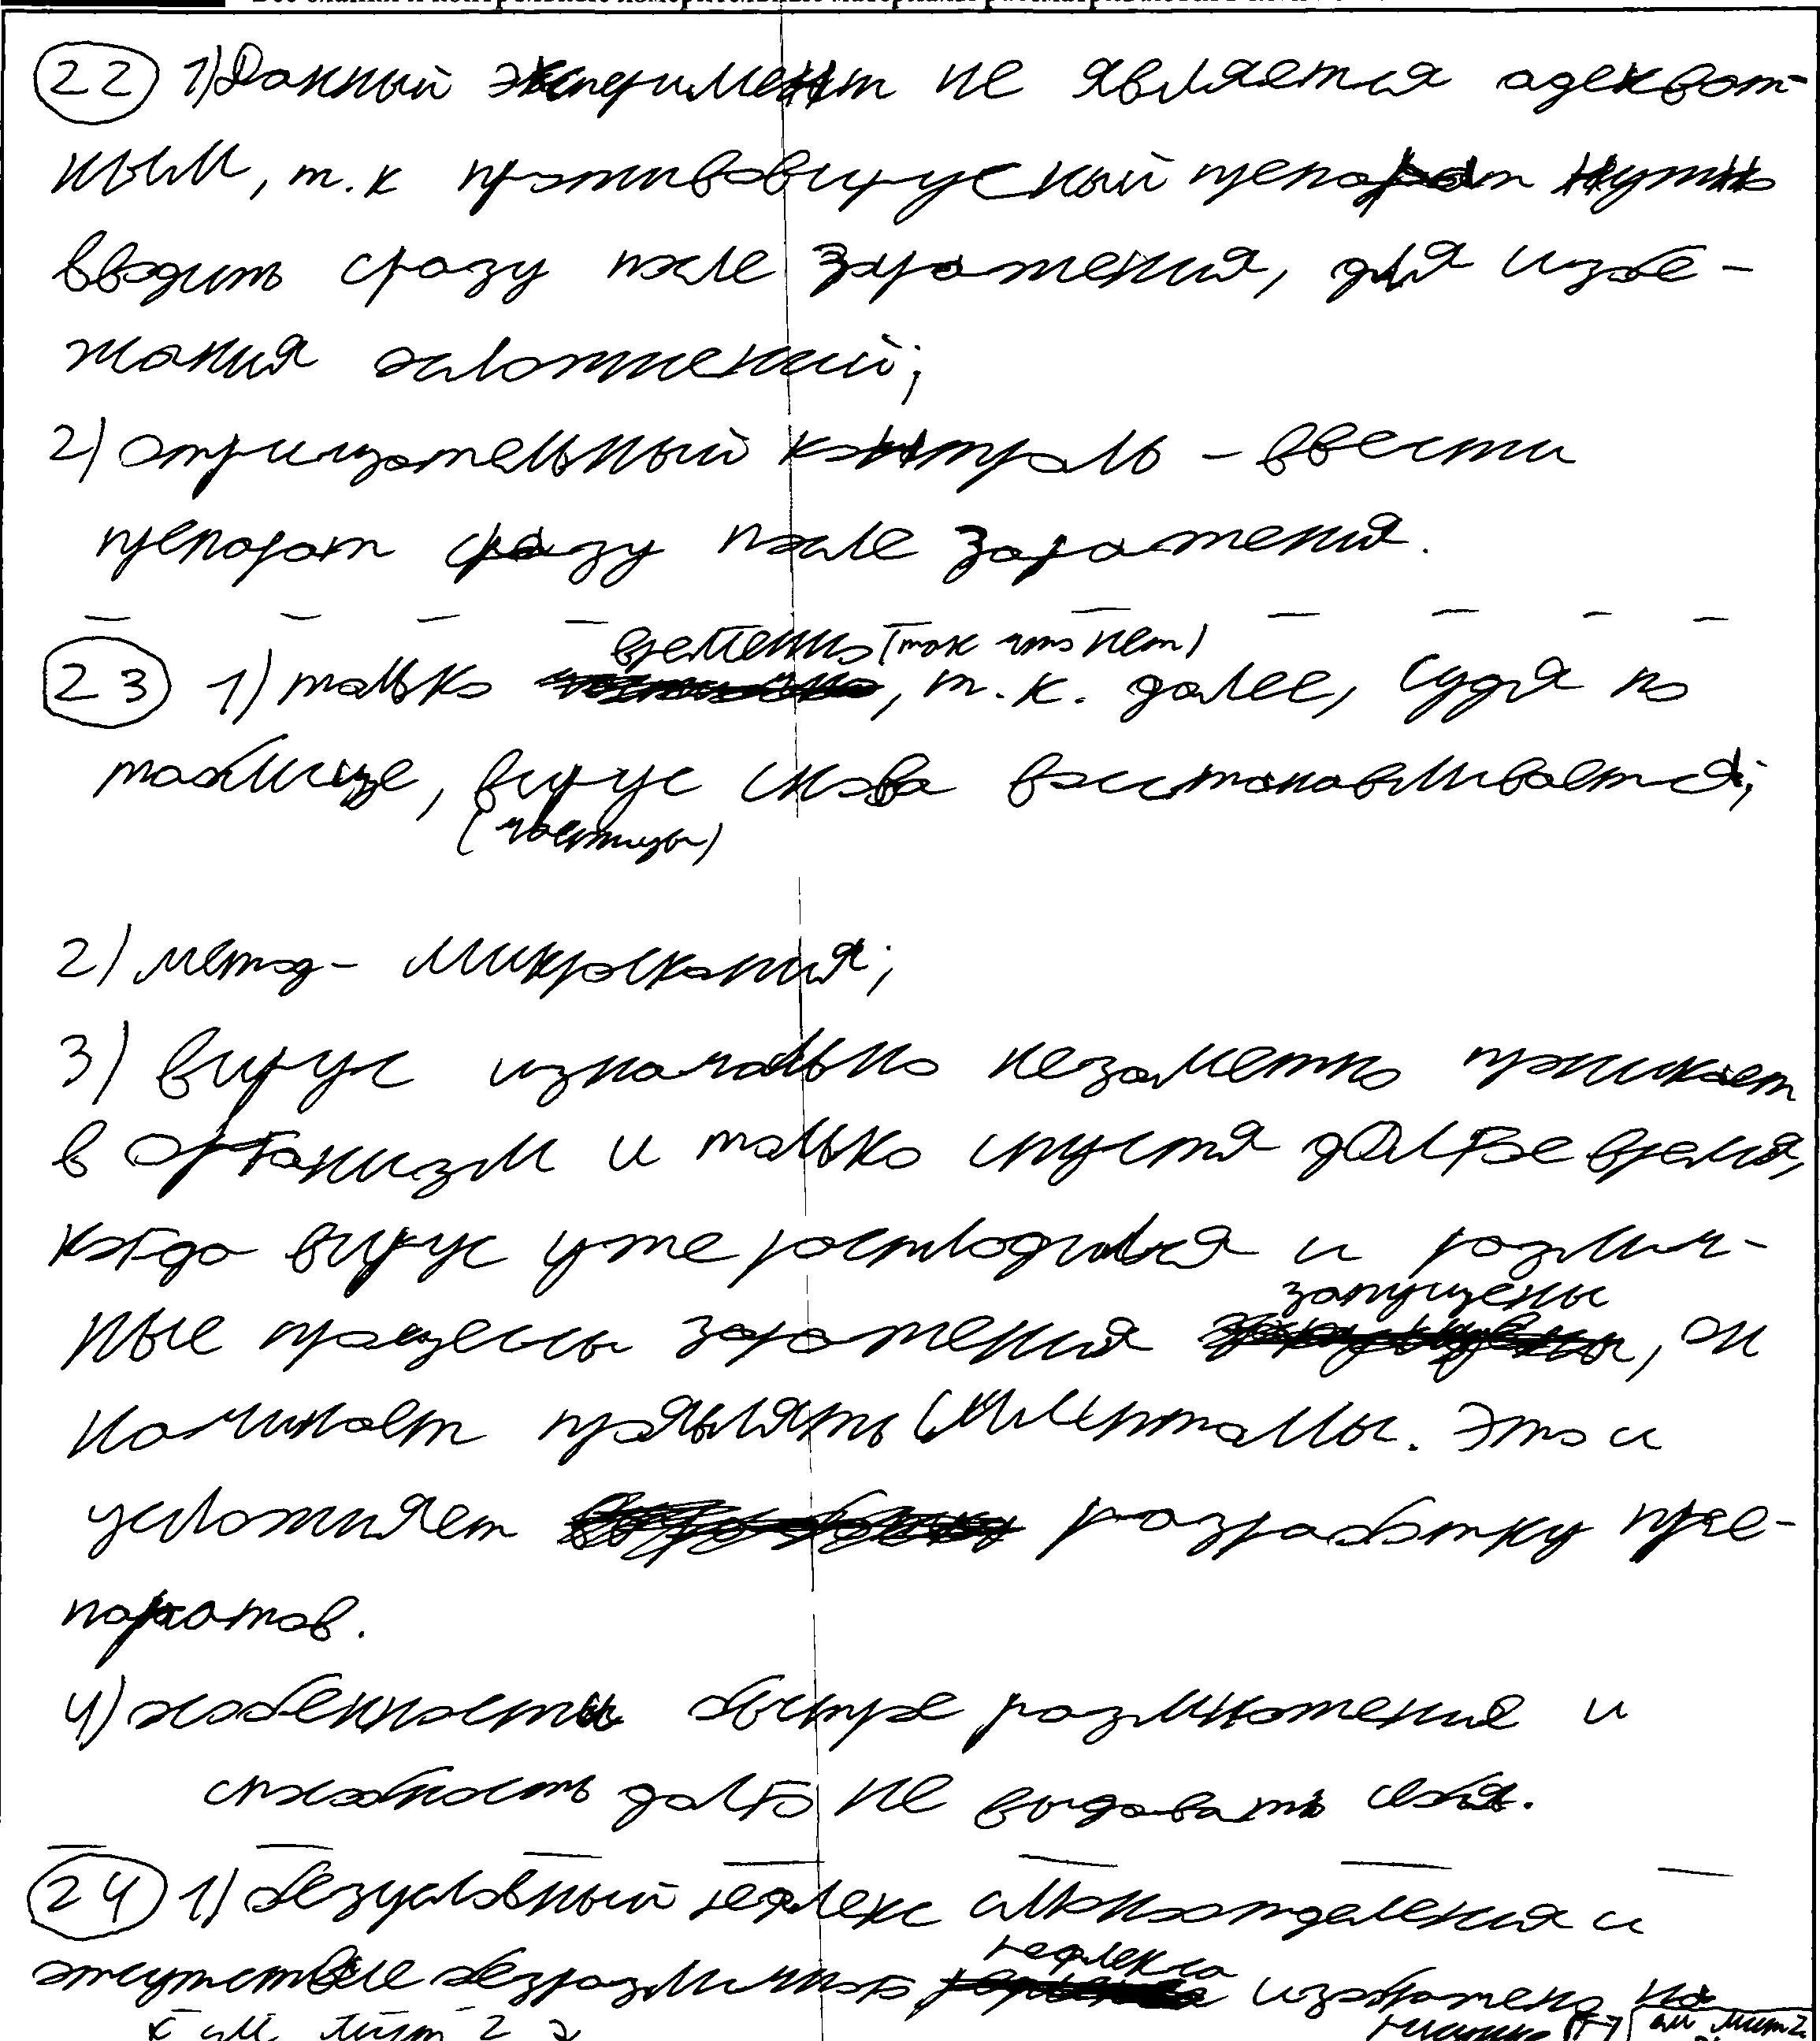 22 1) Данный эксперимент не является адекват-
ным, т.к противовирусный препарат нужно
вводить сразу после заражения, для избе-
жания осложнений;
2) отрицательный контроль - ввести
препарат сразу после заражения.
временно (так что нет)
23 1) только , т.к. далее, судя по
таблице, вирус снова восстанавливается;
(частицы)
2) метод - микроскопия;
3) вирус изначально незаметно проникает
в организм и только спустя долгое время,
когда вирус уже расплодился и различ-
запущены
ные процессы заражения , он
начинает проявлять симптомы. Это и
усложняет разработку пре-
паратов.
4) особенности быстрое размножение и
способность долго не выдавать себя.
24 1) безусловный рефлекс слюноотделения и
рефлекса
отсутствие безразличного изображено на
см лист 2
рисунке см лист 2